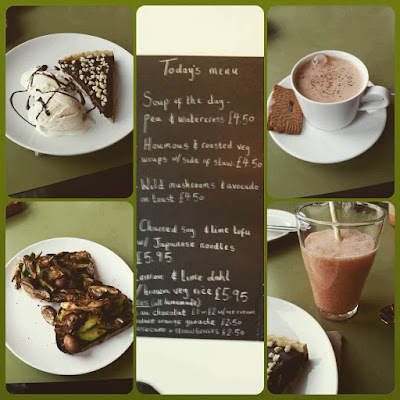 Today's menu
Soup of the day -
pea & watercress £4.50
Houmous & roasted veg
wraps w/ side of slaw £4.50
Wild mushrooms & avocado
on toast £4.50
Charred soy & lime tofu
w/ Japanese noodles
£5.95
Lemon & lime dahl
w/ brown veg rice £5.95
(all homemade)
chocolat
orange ganache £2.50
& strawberries £2.50